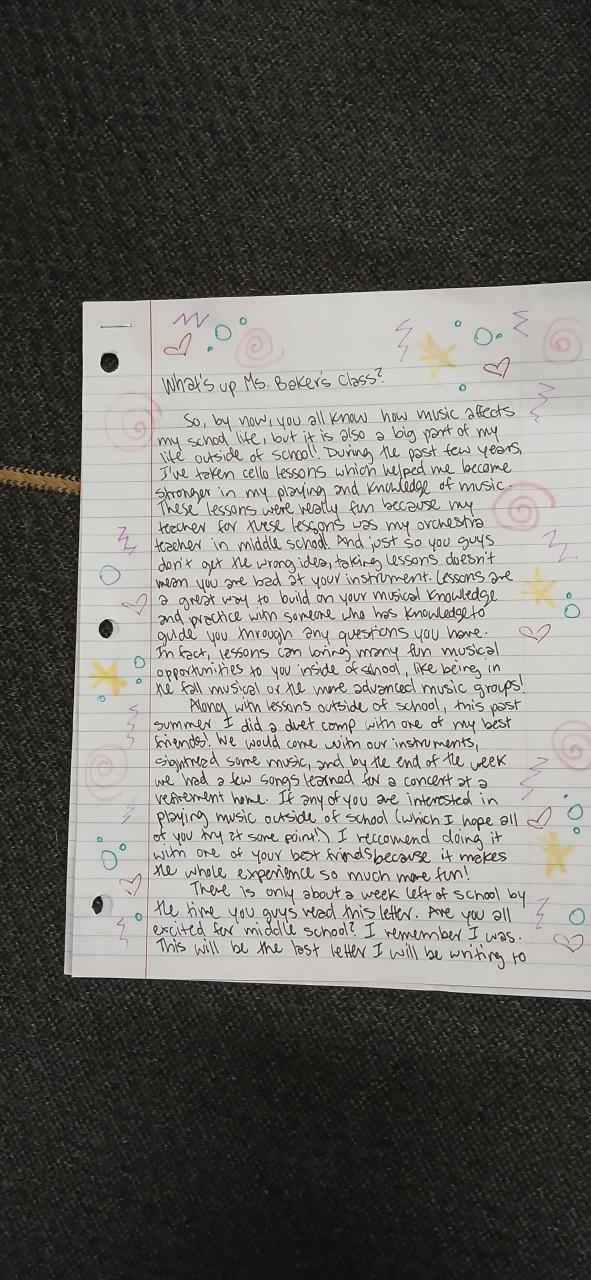 What's up Ms. Baker's Class?
So, by now, you all know how music affects
my school life, but it is also a big part of my
life outside of school! During the past few years,
I've taken cello lessons which helped me become
stronger in my playing and knowledge of music.
These lessons were really fun because my
teacher for these lessons was my orchestra
teacher in middle school. And just so you guys
don't get the wrong idea, taking lessons doesn't
mean you are bad at your instrument. Lessons are
a great way to build on your musical knowledge
and practice with someone who has knowledge to
guide you through any questions you have.
In fact, lessons can bring many fun musical
opportunities to you inside of school, like being in
the fall musical or the more advanced music groups!
Along with lessons outside of school, this past
summer I did a duet camp with one of my best
friends! We would come with our instruments,
sightread some music, and by the end of the week
we had a few songs learned for a concert at a
retirement home. If any of you are interested in
playing music outside of school (which I hope all
of you try at some point!) I reccomend doing it
with one of your best friends because it makes
the whole experience so much more fun!
There is only about a week left of school by
the time you guys read this letter. Are you all
excited for middle school? I remember I was.
This will be the last letter I will be writing to